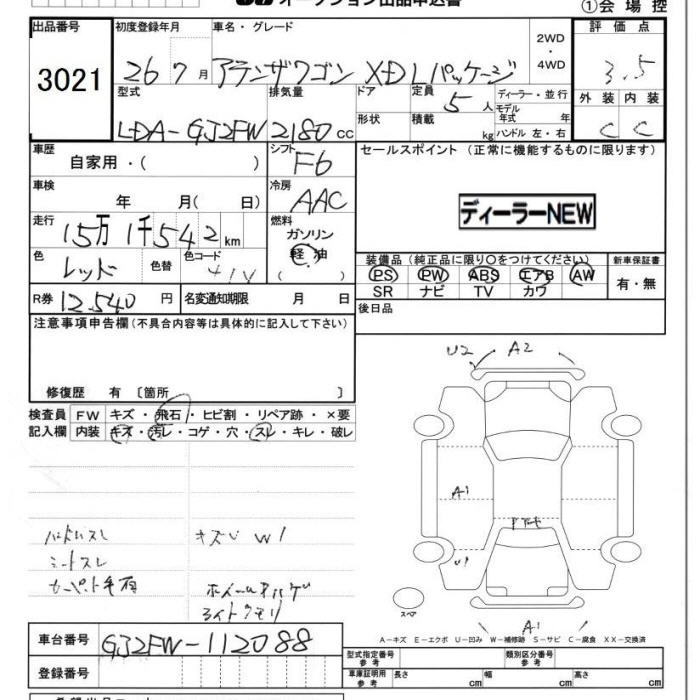 ①会場控
出品番号 初度登録年月 車名・グレード 2WD・4WD 評価点
3021 26 7月 アテンザワゴン XD Lパッケージ 3.5
型式 排気量 ドア形状 定員 5人 積載 kg ディーラー・並行 モデル年式 年 ハンドル 左・右 外装 内装
LDA-GJ2FW 2180 cc C C
車歴 自家用・( ) シフト F6 セールスポイント (正常に機能するものに限ります)
車検 年 月( 日) 冷房 AAC
ディーラーNEW
走行 15万1千542km 燃料 ガソリン 軽油 ( )
色 レッド 色替 色コード 41V
装備品 (純正品に限り○をつけてください) 新車保証書
PS PW ABS エアB AW 有・無
SR ナビ TV カワ
R券 12,540円 名変通知期限 月 日 後日品
注意事項申告欄 (不具合内容等は具体的に記入して下さい)
修復歴 有 〔箇所 〕
検査員記入欄 FW キズ・飛石・ヒビ割・リペア跡・×要
内装 キズ・汚レ・コゲ・穴・スレ・キレ・破レ
U2 A2
A1
U1
A1
スペア
ハンドルスレ キズU W1
シートスレ
ライトクモリ
A-キズ E-エクボ U-凹み W-補修跡 S-サビ C-腐食 XX-交換済
車台番号 GJ2FW-112088
型式指定番号 参考 類別区分番号 参考
登録番号 車庫証明用 参考 長さ cm 幅 cm 高さ cm